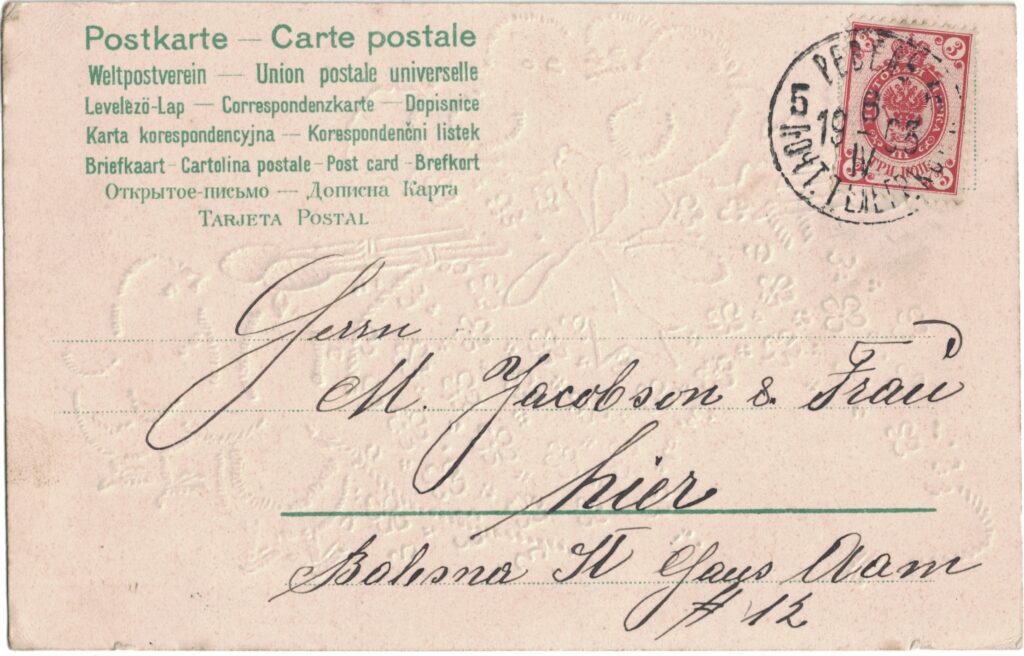 Postkarte — Carte postale
Weltpostverein — Union postale universelle
Levelėzö-Lap — Correspondenzkarte — Dopisnice
Karta korespondencyjna — Korespondenčni listek
Briefkaart - Cartolina postale - Post card - Brefkort
Открытое-письмо — Дописна Карта
TARJETA POSTAL
3 3
РЕВЕЛ
5 8 IV
19 03
ПОЧТ. ТЕЛЕГР. КОН
ТРИ КОП.
Herrn
M. Jacobson & Frau
hier
Haus Adam
# 12